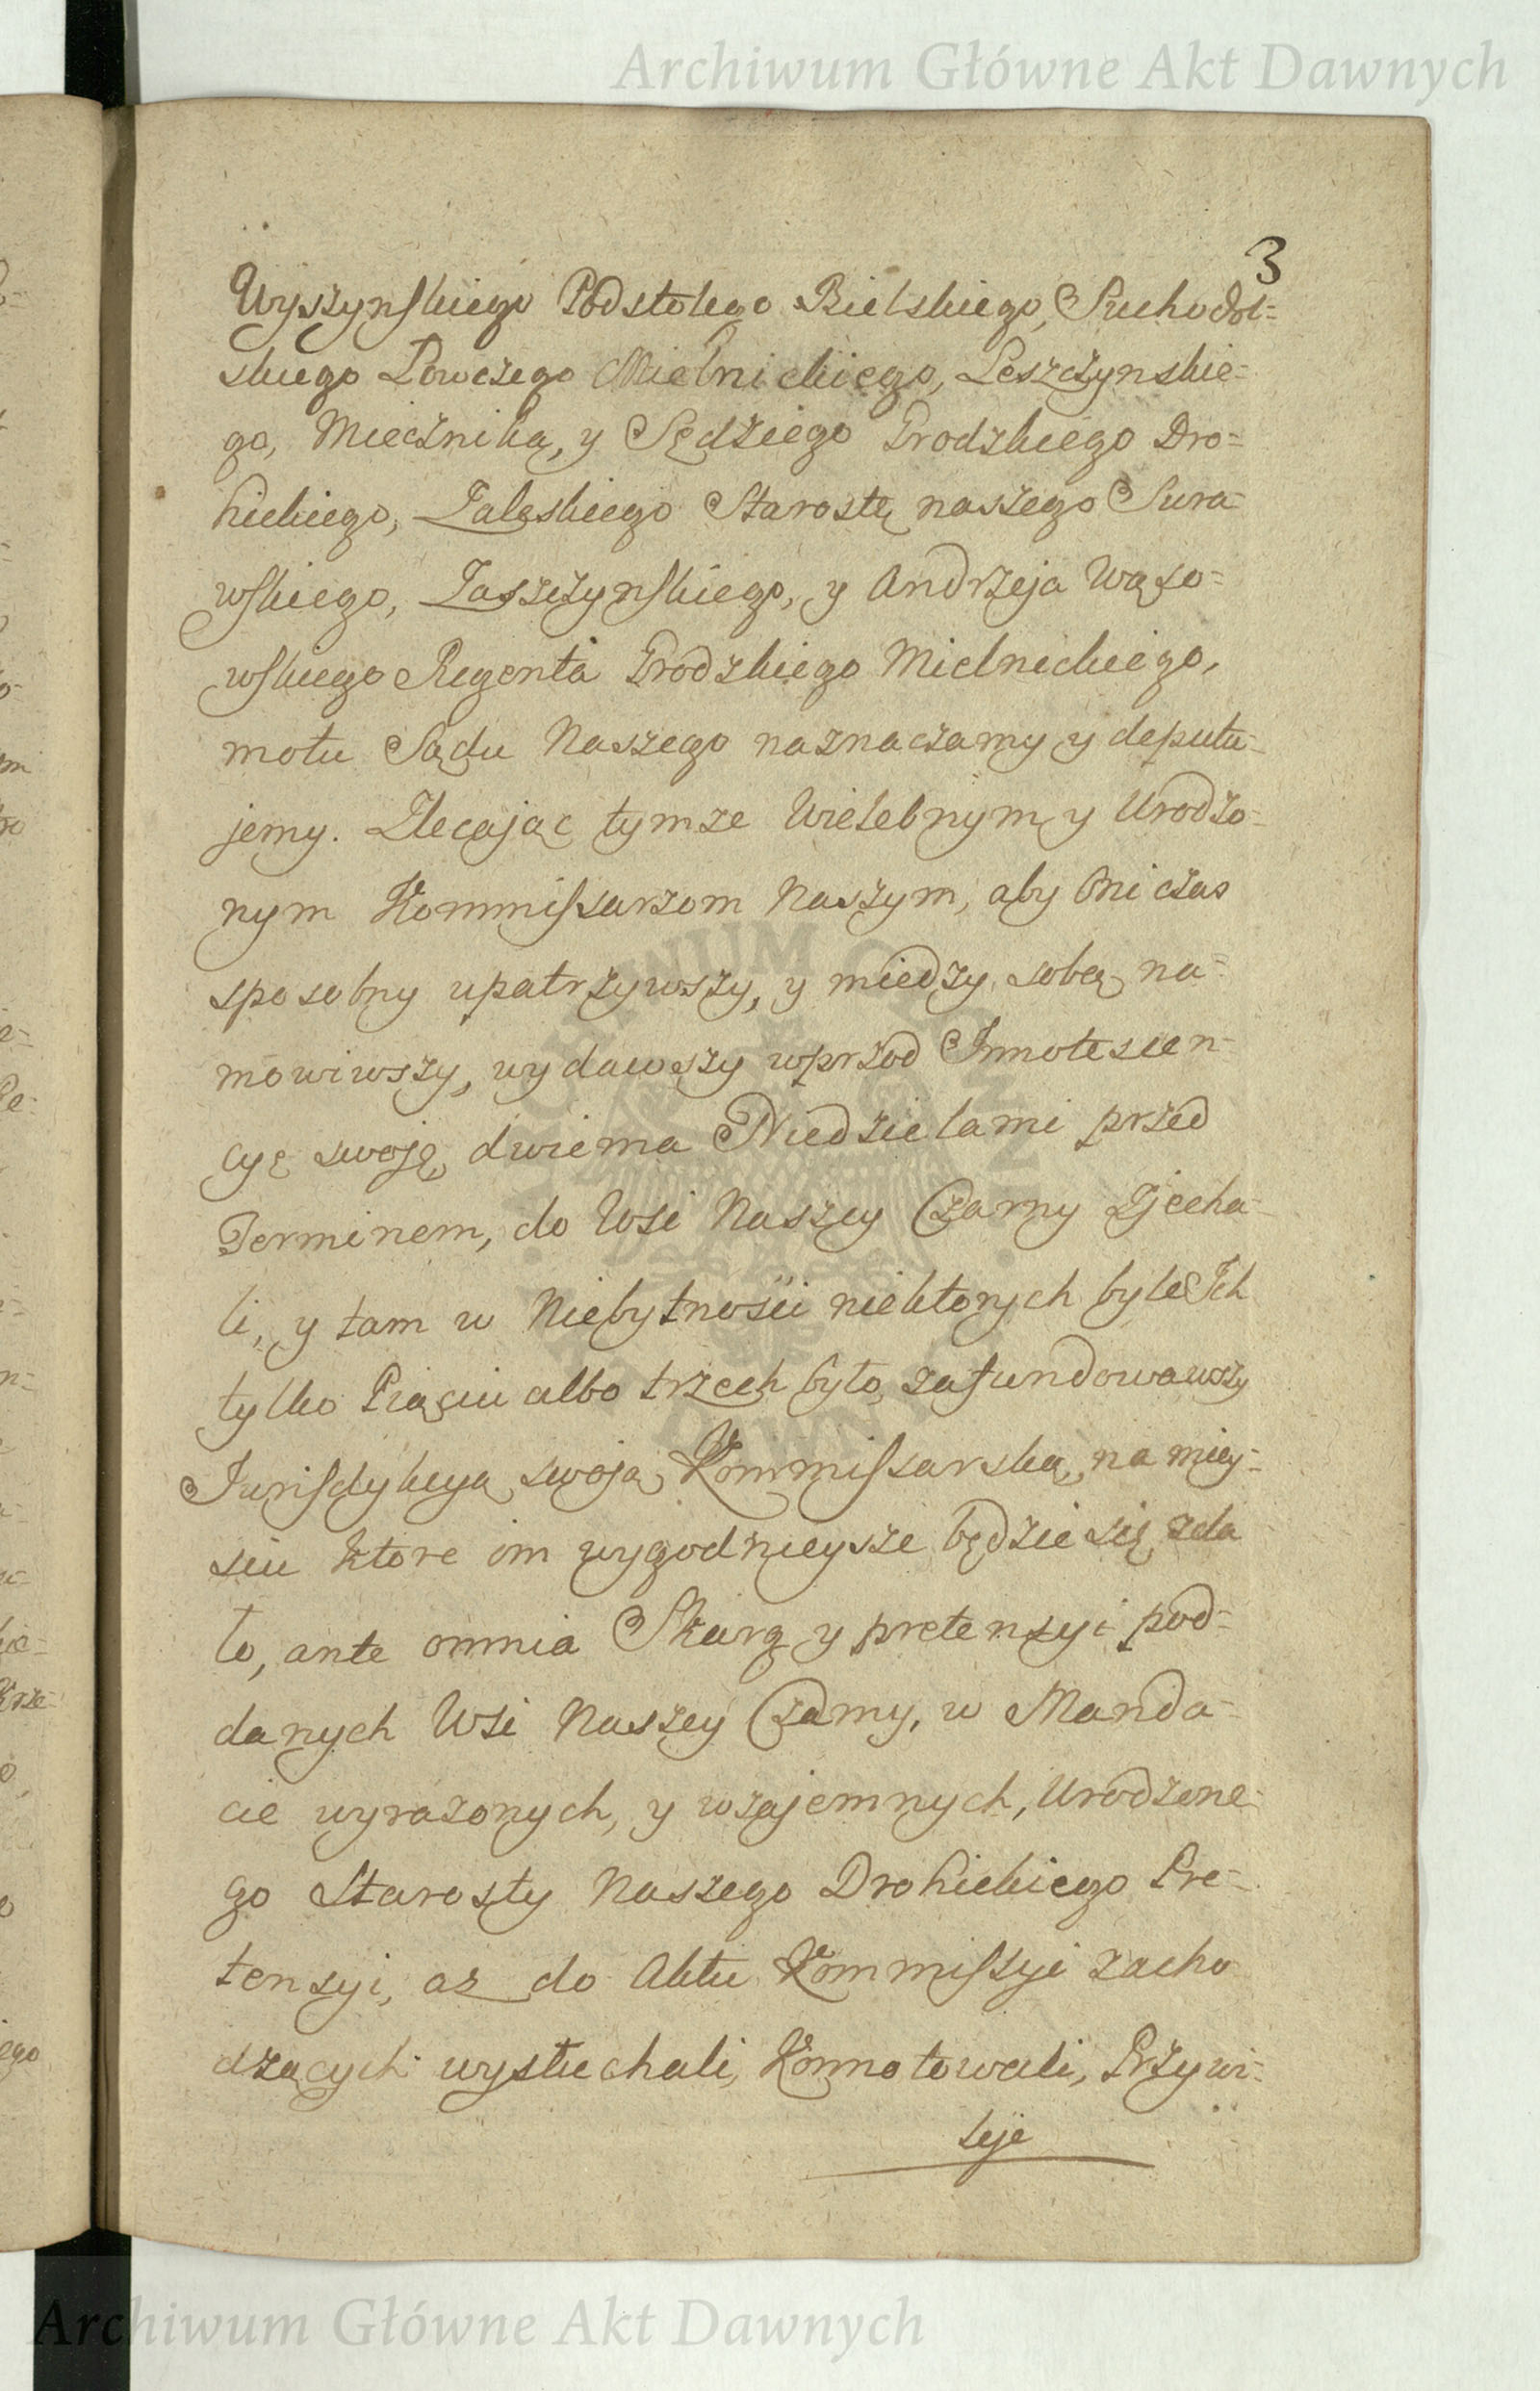 Archiwum Główne Akt Dawnych
3
Wyszynskiego Podstolego Bielskiego, Suchodol=
skiego Łowczego Mielnickiego, Leszczynskie=
go, Miecznika, y Sędziego Grodzkiego Dro=
hickiego, Zaleskiego Starostę naszego Sura=
wskiego, Zaszczynskiego, y Andrzeja Wąso=
wskiego Regenta Grodzkiego Mielnickiego,
motu Sądu Naszego naznaczamy y deputu=
jemy. Zlecając tymze Wielebnym y Urodzo=
nym Kommissarzom Naszym, aby Oni czas
sposobny upatrzywszy, y miedzy sobą na=
mowiwszy, wydawszy wprzod Innotescen=
cyę swoję, dwiema Niedzielami przed
Terminem, do Wsi Naszey Czarny Zjecha=
li, y tam w Niebytnosci niektorych byle Ich
tylko Piąciu albo trzech było, zafundowawszy
Jurisdykcyą swoją Kommissarską, na miey=
scu ktore im wygodnieysze będzie się zda
ło, ante omnia Skarg y pretensyi pod=
danych Wsi Naszey Czarny, w Manda=
cie wyrazonych, y wzajemnych, Urodzone=
go Starosty Naszego Drohickiego Pre=
tensyi, az do Aktu Kommissyi zacho
dzących wysłuchali, Konnotowali, Przywi=
leje
Archiwum Główne Akt Dawnych